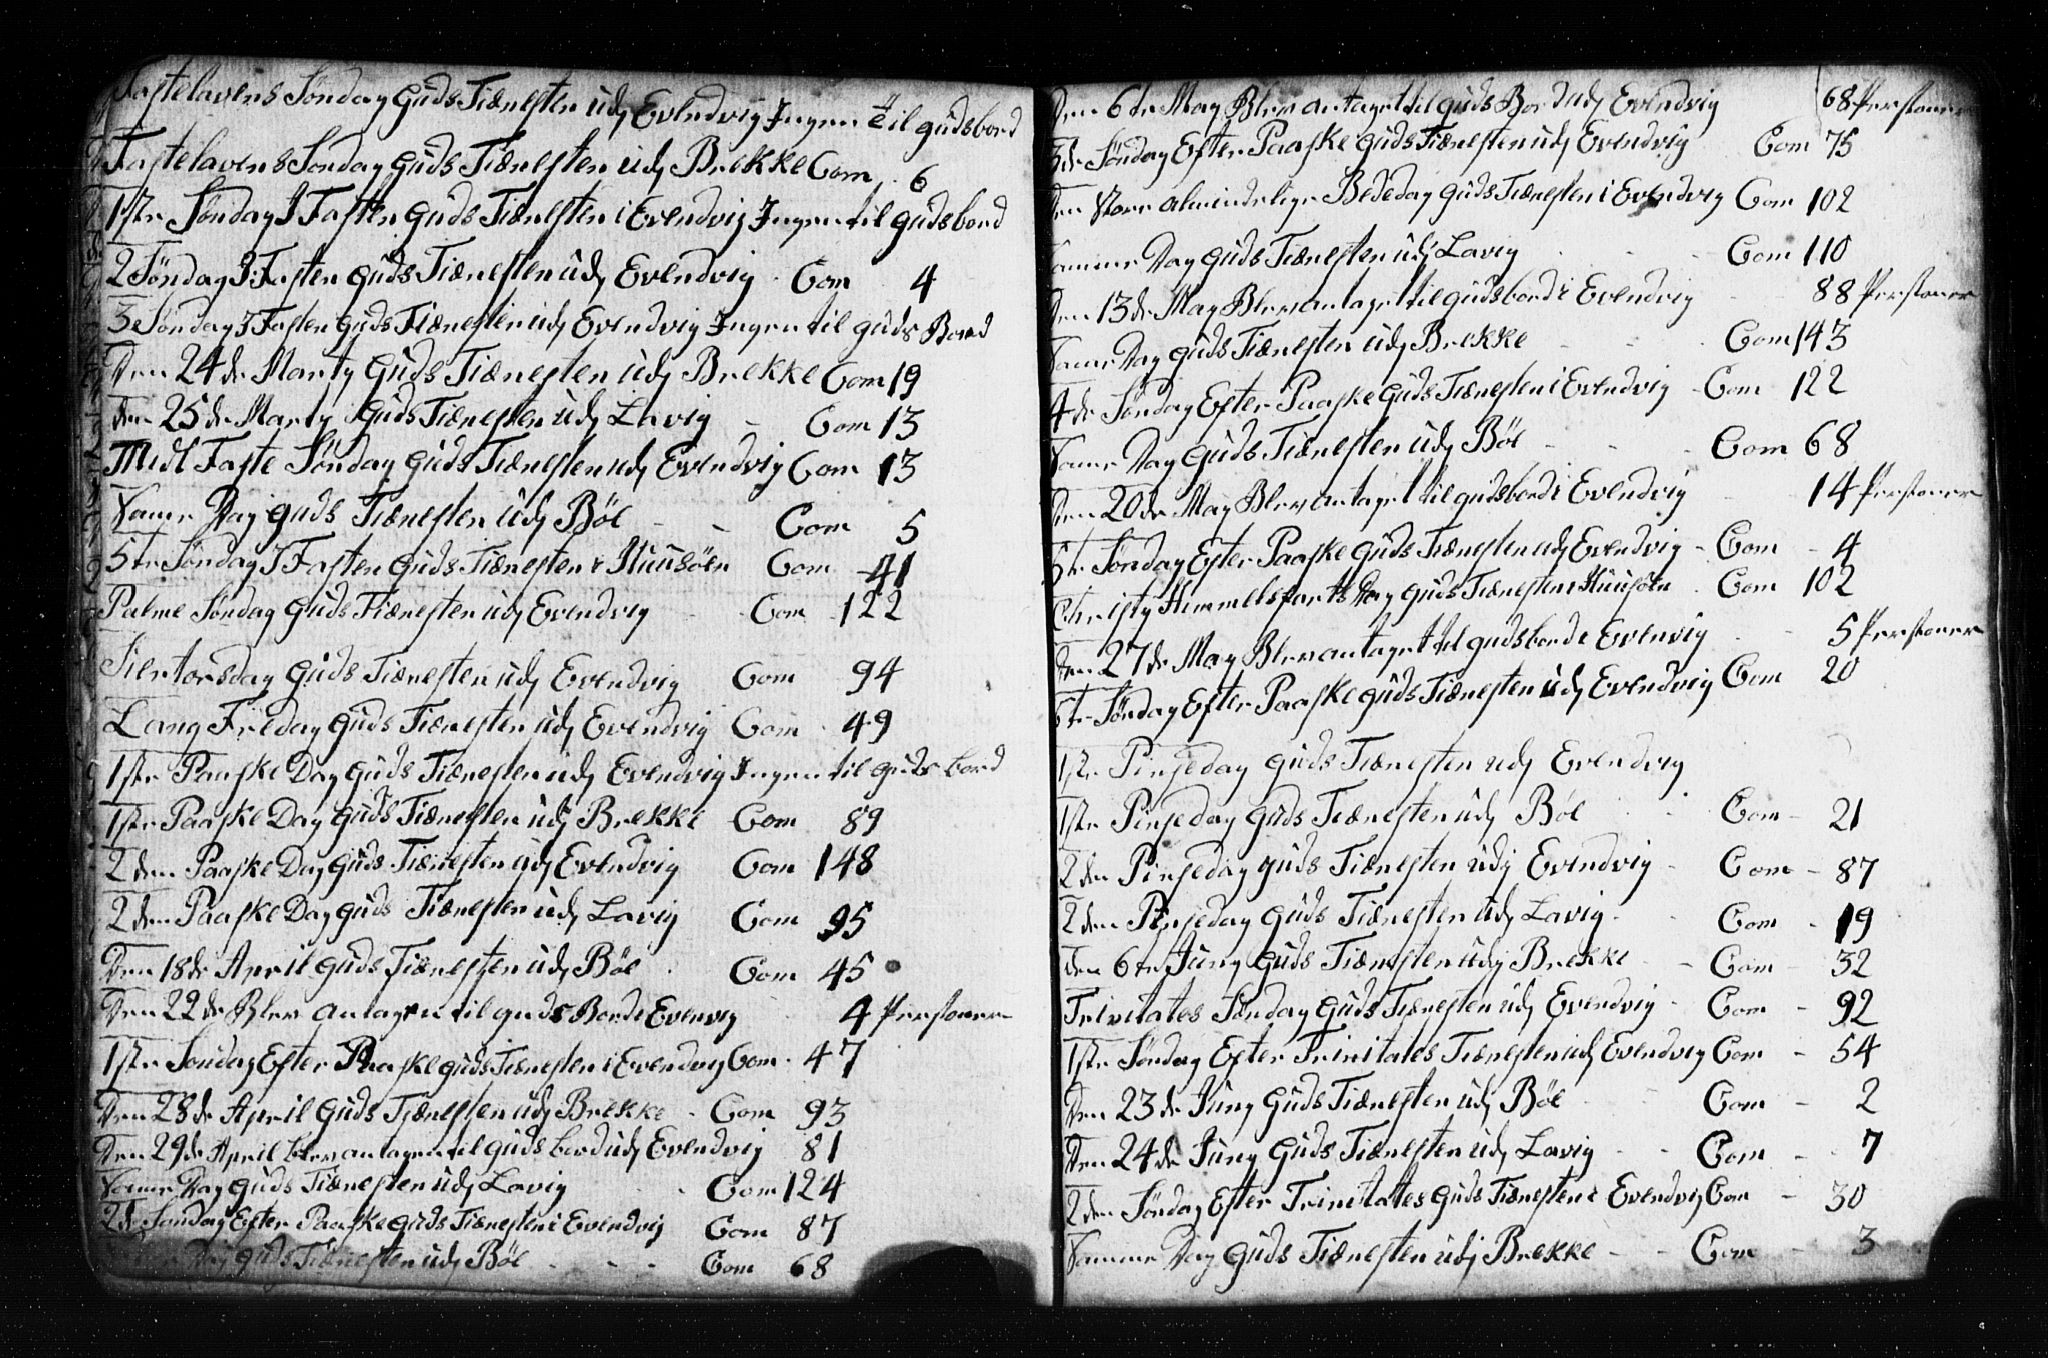 Fastelavens Søndag Guds Tiænesten udj Evendvig Ingen til gudsbord
Fastelavens Søndag Guds Tiænesten udj Brekke Com 6
1ste Søndag I Fasten Guds Tiænesten i Evendvig Ingen til gudsbord
2 Søndag I Fasten Guds Tiænesten udj Evendvig - Com 4
3e Søndag I Fasten Guds Tiænesten udj Evendvig Ingen til guds Bord
Den 24de Marty Guds Tiænesten udj Brekke Com 19
den 25de Marty Guds Tiænesten udj Lavig - Com 13
Midt Faste Søndag Guds Tiænesten udj Evendvig Com 13
Same Dag Guds Tiænesten udj Böe - - Com 5
5te Søndag I Fasten Guds Tiænesten i Huusöen Com 41
Palme Søndag Guds Tiænesten udj Evendvig - Com 122
Skiertorsdag Guds Tiænesten udj Evendvig Com 94
Lang Fredag Guds Tiænesten udj Evendvig Com 49
1ste Paaske Dag Guds Tiænesten udj Evendvig Ingen til guds bord
1ste Paaske Dag Guds Tiænesten udj Brekke Com 89
2den Paaske Dag Guds Tiænesten udj Evendvig Com 148
2den Paaske Dag Guds Tiænesten udj Lavig Com 95
Den 18de April Guds Tiænesten udj Böe . Com 45
Den 22de Blev antagen til guds Bord i Evenvig 4 Personer
1ste Søndag Efter Paaske guds Tiænesten i Evendvig Com 47
Den 28de April Guds Tiænesten udj Brekke - Com 93
Den 29de April blev antagen til guds bord udj Evendvig 81
Same Dag Guds Tiænesten udj Lavig Com 124
2de Søndag Efter Paaske guds Tiænesten i Evendvig Com 87
Dag Guds Tiænesten udj Böe - - - Com 68
Den 6te May Blev antaget til guds Bord udj Evendvig 68 Personer
3de Søndag Efter Paaske Guds Tiænesten udj Evendvig Com 75
Den Store almindelige Bededag Guds Tiænesten i Evendvig Com 102
Samme Dag Guds Tiænesten udj Lavig - Com 110
Den 13de May Blev antaget til gudsbord i Evendvig - 88 Personer
Same Dag Guds Tiænesten udj Brekke - - Com 143
4de Søndag Efter Paaske Guds Tiænesten i Evendvig - Com 122
Same Dag Guds Tiænesten udj Böe - - Com 68
Den 20de May Blev antaget til gudsbord i Evendvig 14 Personer
5te Søndag Efter Paaske Guds Tiænesten udj Evendvig - Com - 4
Christy Himmelsfarts Dag Guds Tiænesten i Huusöen . Com 102
Den 27de May Blev antaget til gudsbord i Evenvig - 5 Personer
6te Søndag Efter Paaske Guds Tiænesten udj Evendvig Com 20
1ste Pinsedag Guds Tiænesten udj Evendvig
1ste Pinsedag Guds Tiænesten udj Böe Com - 21
2den Pinsedag Guds Tiænesten udj Evendvig - Com - 87
2den Pinsedag Guds Tiænesten udj Lavig - Com - 19
Den 6te Juny Guds Tiænesten udj Brekke - - Com - 32
Trinitates Søndag Guds Tiænesten udj Evendvig - Com - 92
1ste Søndag Efter Trinitates Tiænesten udj Evendvig Com - 54
Den 23de Juny Guds Tiænesten udj Böe Com - 2
Den 24de Juny Guds Tiænesten udj Lavig - - Com - - 7
2den Søndag Efter Trinitates Guds Tiænesten i Evendvig Com - 30
Samme Dag Guds Tiænesten udj Brekke - - Com - 3